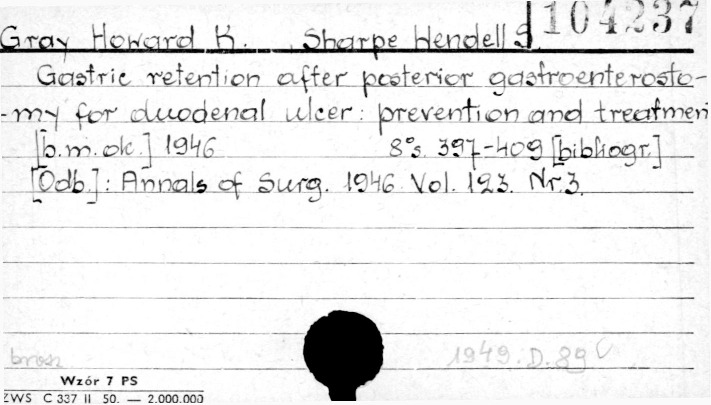 104237
Gray Howard K. , Sharpe Wendell S.
Gastric retention after posterior gastroenterosto-
-my for duodenal ulcer: prevention and treatmen
[b.m.ok.] 1946 8° s. 397-409 [bibliogr.]
[Odb.]: Annals of Surg. 1946 Vol. 123. Nr 3.
brosz 1949. D. 89
Wzór 7 PS
ZWS C 337 II 50. — 2.000.000